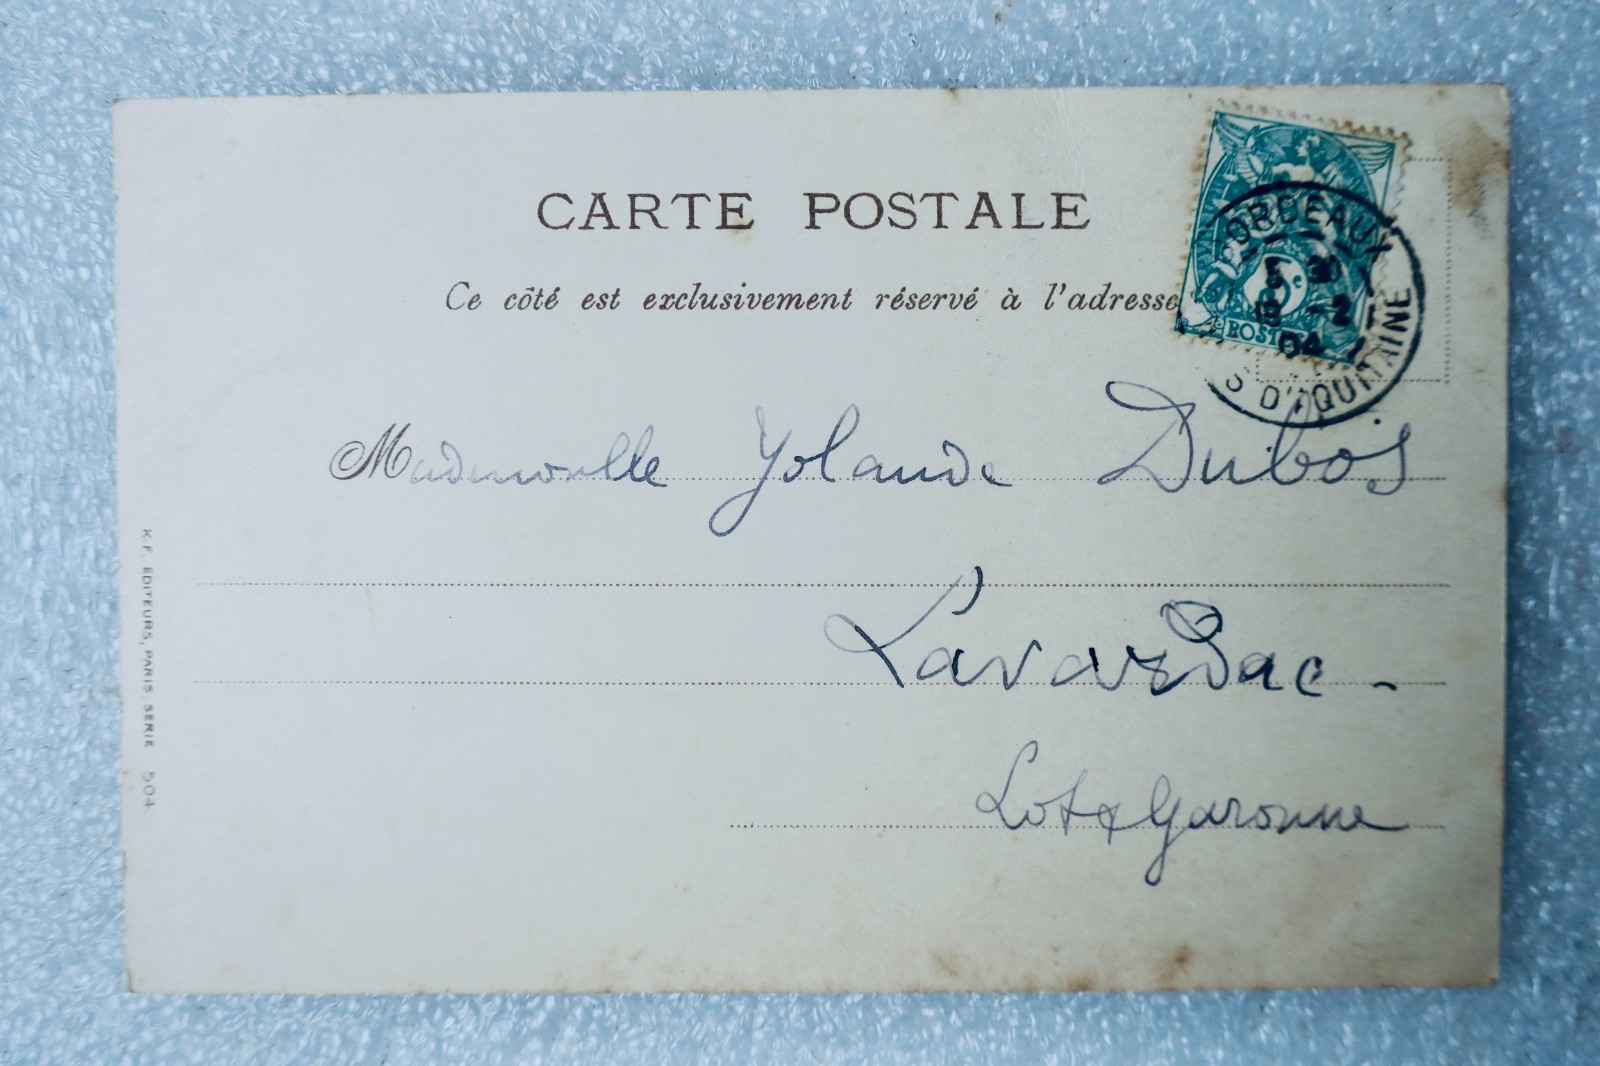 CARTE POSTALE
Ce côté est exclusivement réservé à l'adresse
BORDEAUX
5 30
-2
04
D'AQUITAINE
5c
POSTES
Mademoiselle Yolande Dubos
Lavardac -
Lot & Garonne
K.F. EDITEURS, PARIS SERIE 504